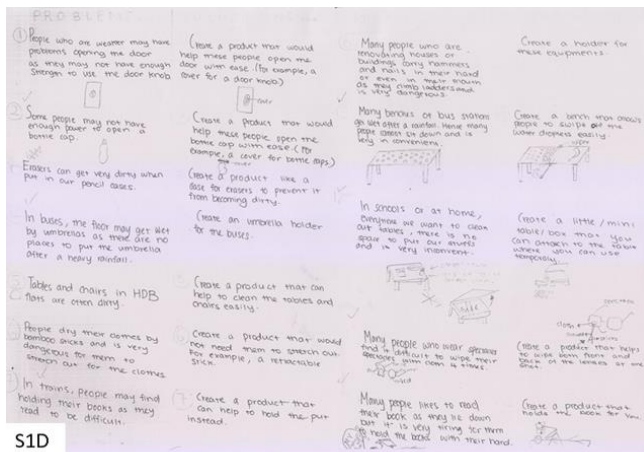 PROBLEMS
① People who are weaker may have
problems opening the door
as they may not have enough
strength to use the door knob
Create a product that would
help these people open the
door with ease. (for example, a
cover for a door knob)
cover
② Some people may not have
enough power to open a
bottle cap.
Create a product that would
help these people open the
bottle cap with ease. (For
example, a cover for bottle caps)
cover
Erasers can get very dirty when
put in our pencil cases.
Create a product like a
case for erasers to prevent it
from becoming dirty.
In buses, the floor may get wet
by umbrellas as there are no
places to put the umbrella
after a heavy rainfall.
Create an umbrella holder
for the buses.
Tables and chairs in HDB
flats are often dirty.
Create a product that can
help to clean the tables and
chairs easily.
People dry their clothes by
bamboo sticks and is very
dangerous for them to
stretch out for the clothes
Create a product that would
not need them to stretch out.
For example, a retractable
stick.
In trains, people may find
holding their books as they
read to be difficult.
7. Create a product that
can help to hold the put
instead.
Many people who are
renovating houses or
buildings carry hammers
and nails in their hand
or even in their mouth
as they climb ladders and
is very dangerous.
Create a holder for
these equipments.
Many benches at bus stations
get wet after a rainfall. Hence many
people cannot sit down and is
very in convenient.
Create a bench that allows
people to swipe off the
water droplets easily.
In schools or at home,
everytime we want to clean
out tables, there is no
space to put our stuffs
and is very inconvenient.
Create a little/mini
table/box that you
can attach to the table
where you can use
temporarily.
Many people who wear spectacles
find it difficult to wipe their
spectacles
cloth
Create a product that helps
to wipe both front and
back of the lenses at one
shot.
Many people likes to read
their book as they lie down
but it is very tiring for them
to hold the books with their hand.
Create a product that
holds the book for
S1D